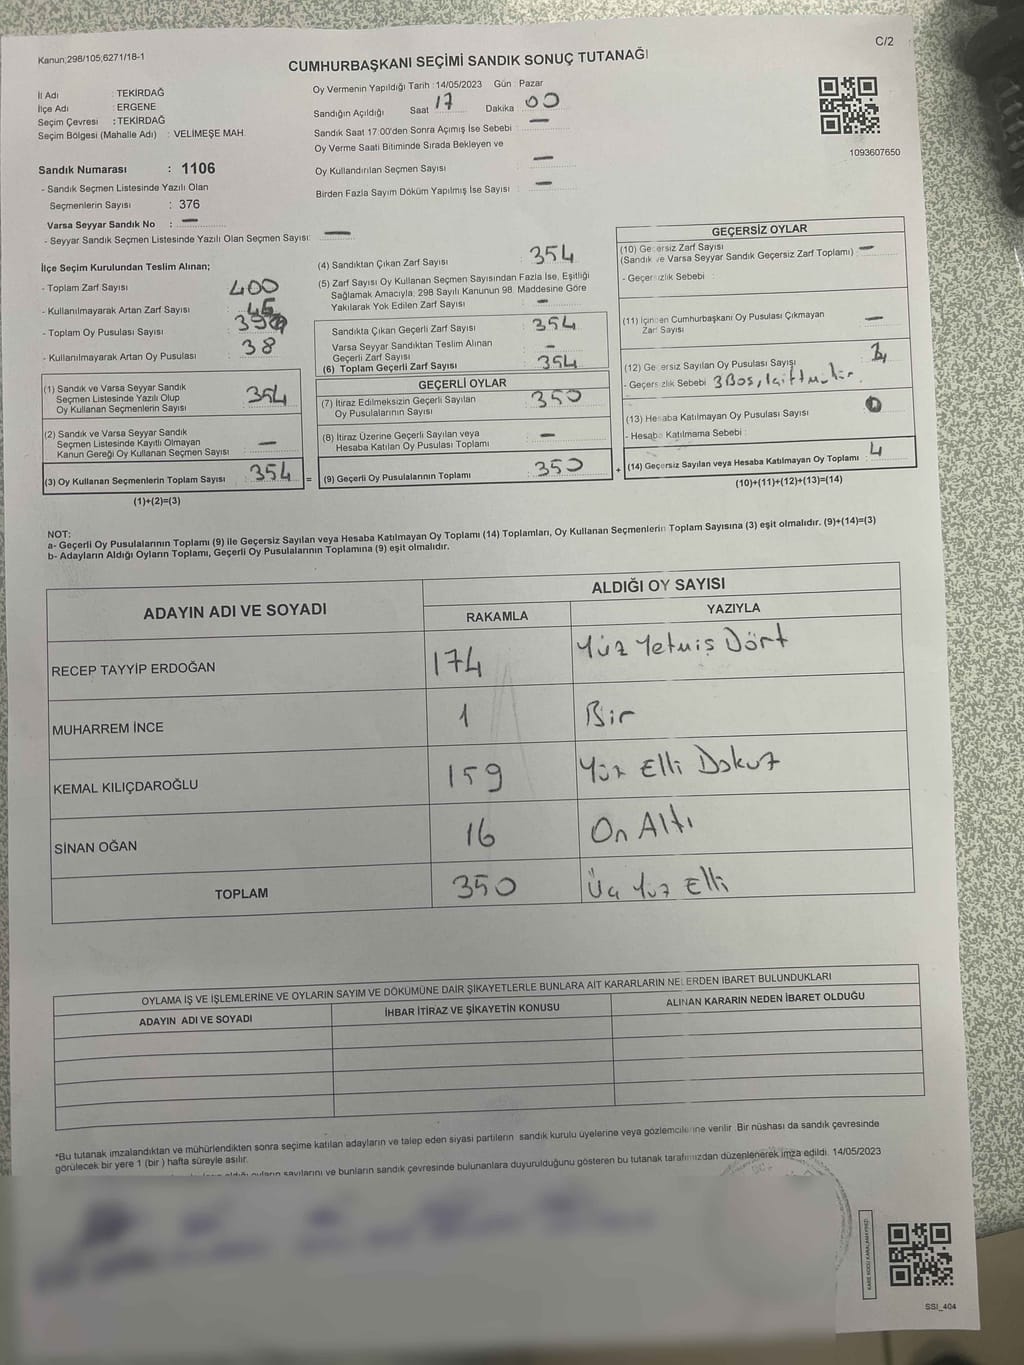 Kanun;298/105;6271/18-1
C/2
CUMHURBAŞKANI SEÇİMİ SANDIK SONUÇ TUTANAĞI
İl Adı : TEKİRDAĞ
İlçe Adı : ERGENE
Seçim Çevresi : TEKİRDAĞ
Seçim Bölgesi (Mahalle Adı) : VELİMEŞE MAH.
Sandık Numarası : 1106
- Sandık Seçmen Listesinde Yazılı Olan
Seçmenlerin Sayısı : 376
Varsa Seyyar Sandık No : —
- Seyyar Sandık Seçmen Listesinde Yazılı Olan Seçmen Sayısı: —
Oy Vermenin Yapıldığı Tarih : 14/05/2023 Gün : Pazar
Sandığın Açıldığı Saat 17 Dakika 00
Sandık Saat 17:00'den Sonra Açımış İse Sebebi : —
Oy Verme Saati Bitiminde Sırada Bekleyen ve
Oy Kullandırılan Seçmen Sayısı : —
Birden Fazla Sayım Döküm Yapılmış İse Sayısı : —
1093607650
İlçe Seçim Kurulundan Teslim Alınan;
- Toplam Zarf Sayısı : 400
- Kullanılmayarak Artan Zarf Sayısı : 46
- Toplam Oy Pusulası Sayısı :
- Kullanılmayarak Artan Oy Pusulası : 38
(1) Sandık ve Varsa Seyyar Sandık
Seçmen Listesinde Yazılı Olup
Oy Kullanan Seçmenlerin Sayısı : 354
(2) Sandık ve Varsa Seyyar Sandık
Seçmen Listesinde Kayıtlı Olmayan
Kanun Gereği Oy Kullanan Seçmen Sayısı : —
(3) Oy Kullanan Seçmenlerin Toplam Sayısı : 354
(1)+(2)=(3)
(4) Sandıktan Çıkan Zarf Sayısı : 354
(5) Zarf Sayısı Oy Kullanan Seçmen Sayısından Fazla İse, Eşitliği
Sağlamak Amacıyla; 298 Sayılı Kanunun 98. Maddesine Göre
Yakılarak Yok Edilen Zarf Sayısı : —
Sandıkta Çıkan Geçerli Zarf Sayısı : 354
Varsa Seyyar Sandıktan Teslim Alınan
Geçerli Zarf Sayısı : —
(6) Toplam Geçerli Zarf Sayısı : 354
GEÇERLİ OYLAR
(7) İtiraz Edilmeksizin Geçerli Sayılan
Oy Pusulalarının Sayısı : 350
(8) İtiraz Üzerine Geçerli Sayılan veya
Hesaba Katılan Oy Pusulaları Toplamı : —
=
(9) Geçerli Oy Pusulalarının Toplamı : 350
+
GEÇERSİZ OYLAR
(10) Geçersiz Zarf Sayısı
(Sandık ve Varsa Seyyar Sandık Geçersiz Zarf Toplamı) : —
- Geçersizlik Sebebi :
(11) İçinden Cumhurbaşkanı Oy Pusulası Çıkmayan
Zarf Sayısı : —
(12) Geçersiz Sayılan Oy Pusulası Sayısı :
- Geçersizlik Sebebi : 3 Boş, 1 çift mühür
(13) Hesaba Katılmayan Oy Pusulası Sayısı :
- Hesaba Katılmama Sebebi :
(14) Geçersiz Sayılan veya Hesaba Katılmayan Oy Toplamı : 4
(10)+(11)+(12)+(13)=(14)
NOT:
a- Geçerli Oy Pusulalarının Toplamı (9) ile Geçersiz Sayılan veya Hesaba Katılmayan Oy Toplamı (14) Toplamları, Oy Kullanan Seçmenlerin Toplam Sayısına (3) eşit olmalıdır. (9)+(14)=(3)
b- Adayların Aldığı Oyların Toplamı, Geçerli Oy Pusulalarının Toplamına (9) eşit olmalıdır.
ADAYIN ADI VE SOYADI
ALDIĞI OY SAYISI
RAKAMLA YAZIYLA
RECEP TAYYİP ERDOĞAN 174 Yüz Yetmiş Dört
MUHARREM İNCE 1 Bir
KEMAL KILIÇDAROĞLU 159 Yüz Elli Dokuz
SİNAN OĞAN 16 On Altı
TOPLAM 350 Üç Yüz Elli
OYLAMA İŞ VE İŞLEMLERİNE VE OYLARIN SAYIM VE DÖKÜMÜNE DAİR ŞİKAYETLERLE BUNLARA AİT KARARLARIN NELERDEN İBARET BULUNDUKLARI
ADAYIN ADI VE SOYADI İHBAR İTİRAZ VE ŞİKAYETİN KONUSU ALINAN KARARIN NEDEN İBARET OLDUĞU
*Bu tutanak imzalandıktan ve mühürlendikten sonra seçime katılan adayların ve talep eden siyasi partilerin sandık kurulu üyelerine veya gözlemcilerine verilir. Bir nüshası da sandık çevresinde
görülecek bir yere 1 (bir) hafta süreyle asılır.
oyların sayılarını ve bunların sandık çevresinde bulunanlara duyurulduğunu gösteren bu tutanak tarafımızdan düzenlenerek imza edildi. 14/05/2023
SSI_404